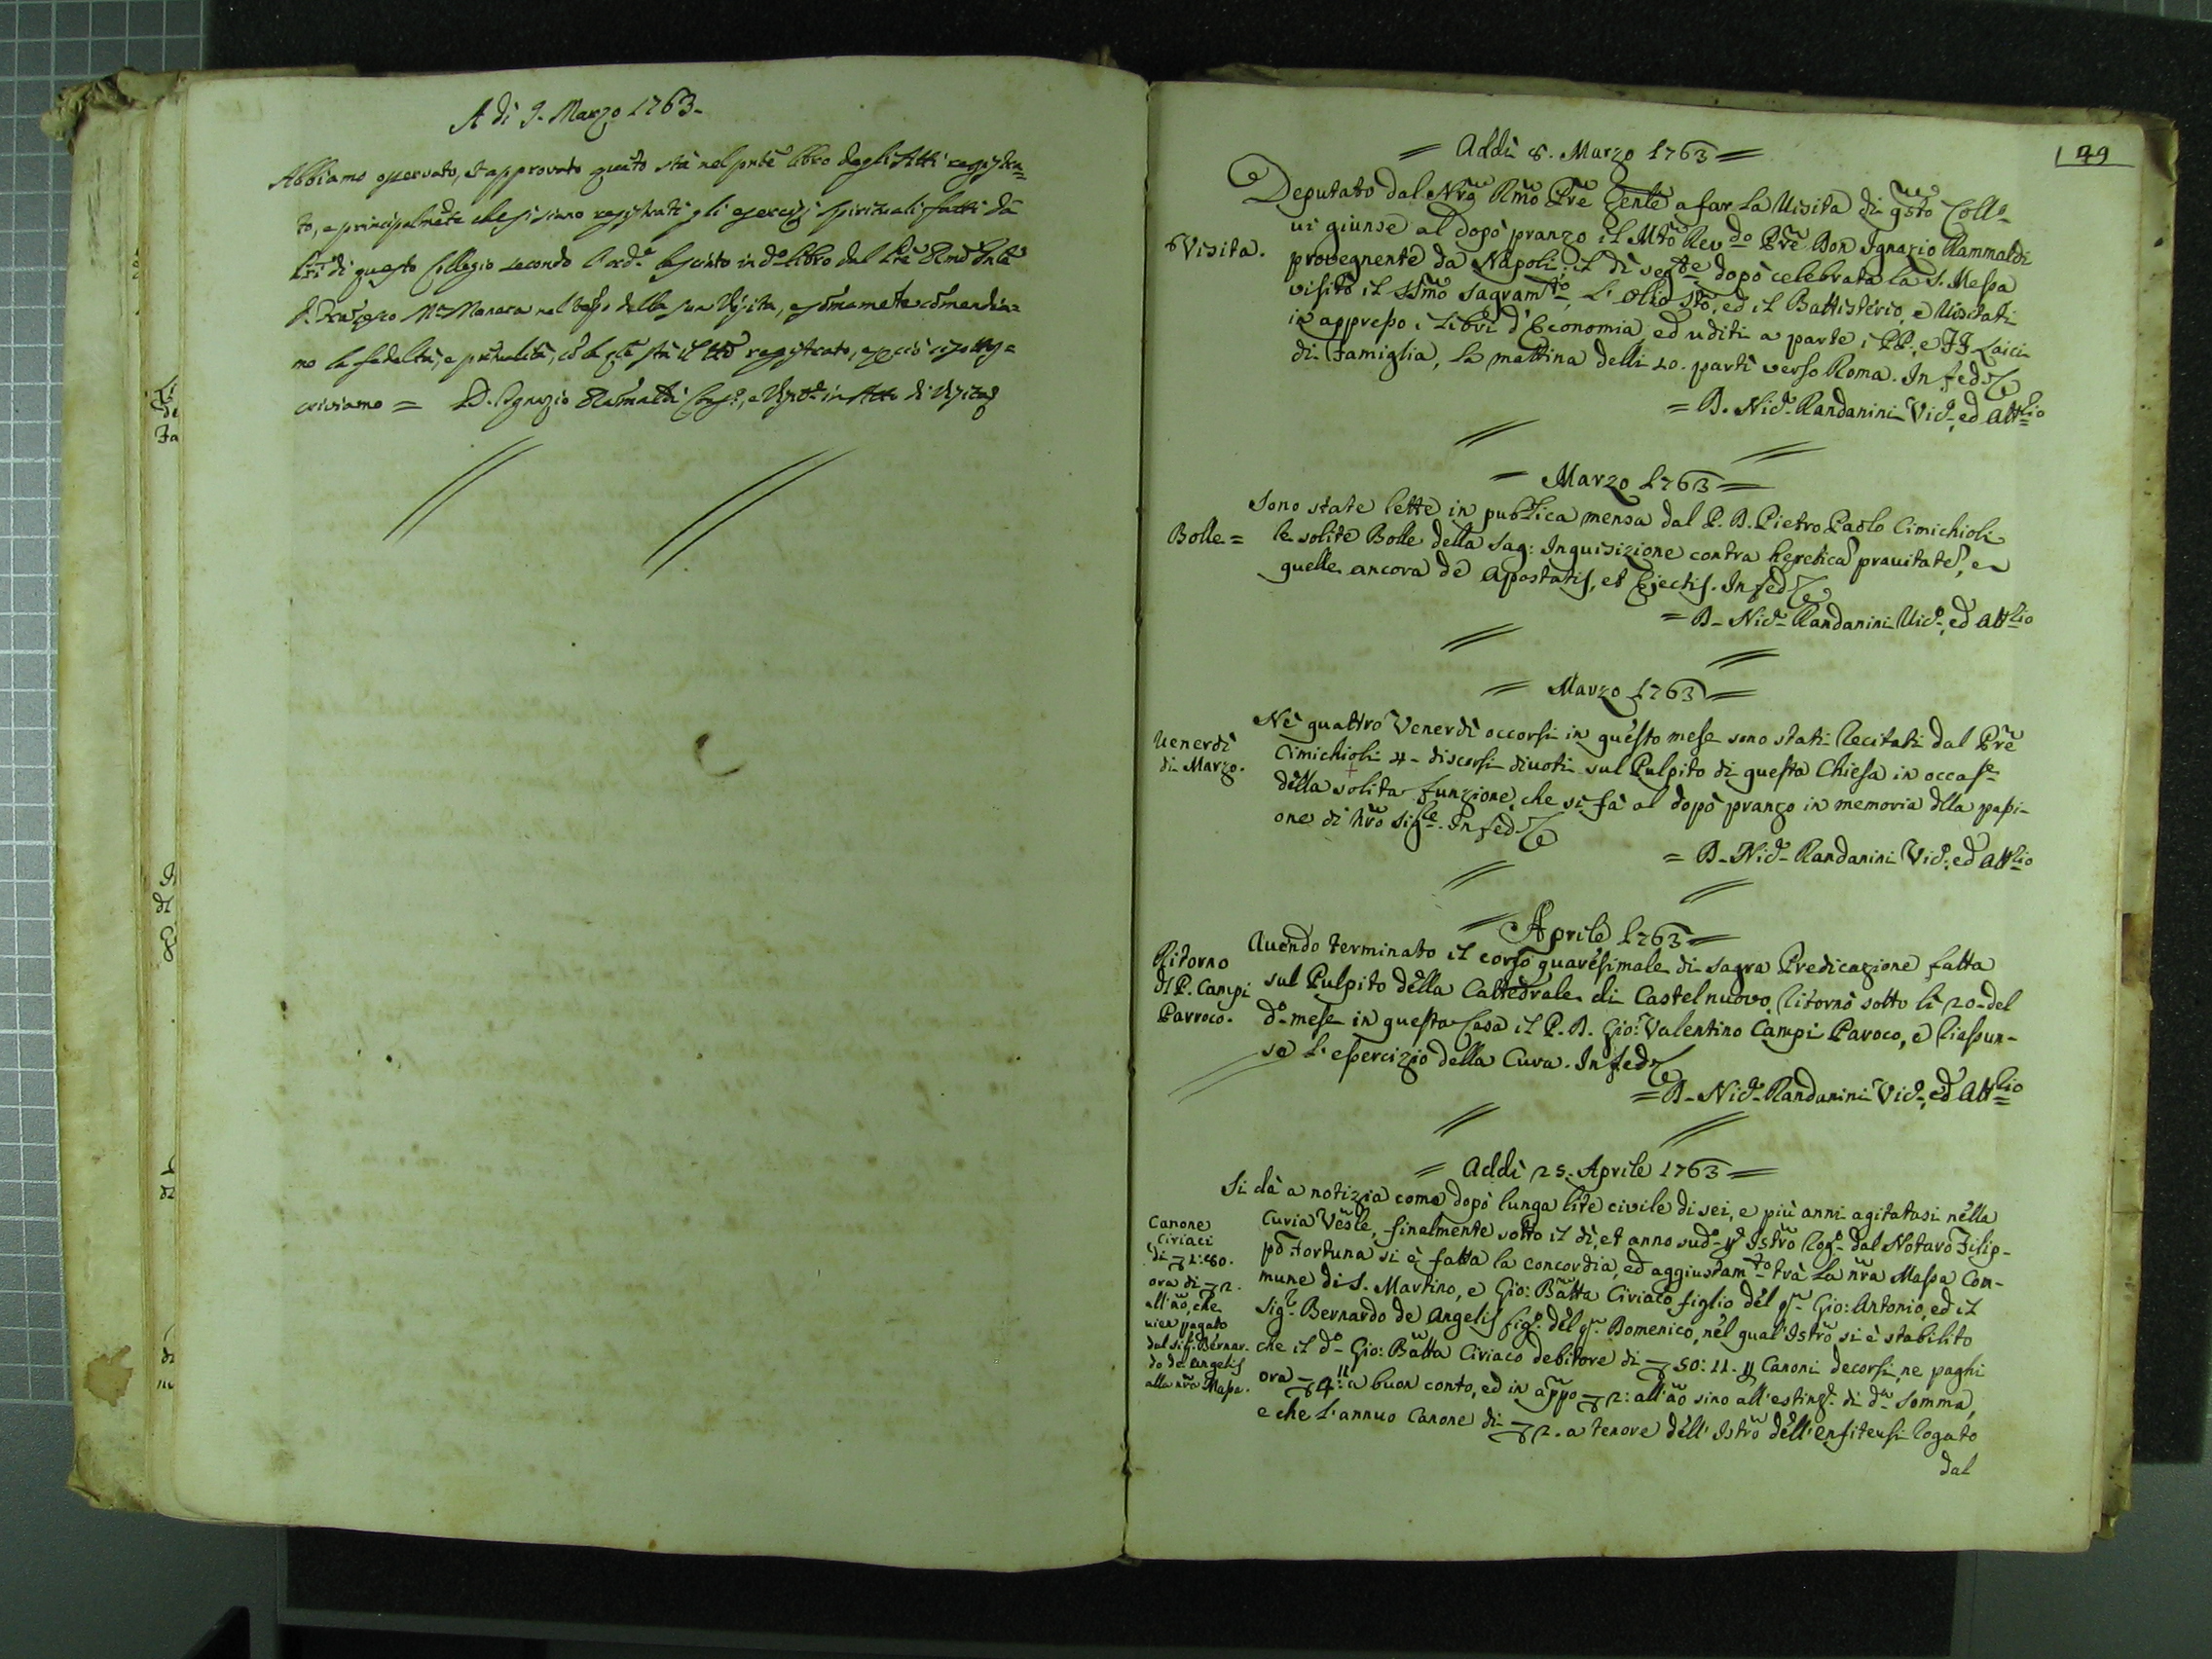 A dì 9. Marzo 1763.
Abbiamo osservato, et approvato quãto stà nel pñte libro degli Atti registra=
to, e principalmẽte che si siano registrati gli esercizj spirituali fatti da
Pri di questo Collegio secondo l'ord.e lasciato in d.o libro dal Prẽ Rmõ Gnle
P. Frãc.sco M.a Manara nel tẽpo della sua Visita, e somamente comendia=
mo la fedeltà, e pũtualità, cõ la qle stà il ttõ registrato, e perciò ci sottos=
criviamo = D. Ignazio Ramaldi Cons.re, e Visit.re in Atto di Visita
= Addì 8. Marzo 1763 =
149
Deputato dal Nrõ Rmõ Prẽ Genle a far la Visita di qsto Coll.o
Visita.
vi giunse al dopò pranzo il Mtõ Rev.do Prẽ Don Ignazio Rammaldi
provegnente da Napoli; il dì seg.te dopò celebrata la S. Messa
visitò il SSmõ Sagram.to, l'Olio Stõ, ed il Battisterio, e Visitati
in appresso i libri d'Economia, ed uditi a parte i PP., e FF. Laici
di Famiglia, la mattina delli 10. partì verso Roma. In fede
= D. Nic.a Randanini Vic.o, ed Att.rio
= Marzo 1763 =
Bolle =
Sono state lette in publica mensa dal P. D. Pietro Paolo Cimichioli
le solite Bolle della Sag: Inquisizione contra hereticã pravitatẽ, e
quelle ancora de Apostatis, et Ejectis. In fede
= D. Nic.a Randanini Vic.o, ed Att.rio
= Marzo 1763 =
Venerdì
di Marzo.
Nè quattro Venerdì occorsi in questo mese sono stati recitati dal Prẽ
Cimichioli 4 discorsi divoti sul Pulpito di questa Chiesa in occas.e
della solita funzione, che si fà al dopò pranzo in memoria dlla passi-
one di Nrõ Sig.re. In fede
= D. Nic.a Randanini Vic.o, ed Att.rio
= Aprile 1763 =
Ritorno
dl P. Campi
Parroco.
Avendo terminato il corso quaresimale di sagra Predicazione fatta
sul Pulpito della Cattedrale di Castelnuovo, ritornò sotto li 20 del
d.o mese in questa Casa il P. D. Gio: Valentino Campi Paroco, e riassun-
se l'esercizio della Cura. In fede
= D. Nic.a Randanini Vic.o, ed Att.rio
= Addì 25. Aprile 1763 =
Canone
Ciriaci
di 1:80.
ora di 2.
all'ãno, che
vien pagato
dal Sig. Bernar-
do de Angelis
alla nrã Massa.
Si dà a notizia come dopò lunga lite civile di sei, e più anni agitatasi nella
Curia Vesle, finalmente sotto il dì, et anno sud.o p Istrõ rog.o dal Notaro Filip-
po Fortuna si è fatta la concordia, ed aggiustam.to trà la nrã Massa Com-
mune di S. Martino, e Gio: Batta Ciriaco figlio del q.m Gio: Antonio, ed il
Sig.r Bernardo de Angelis fig.o del q.m Domenico, nel qual'Istrõ si è stabilito
che il d.o Gio: Batta Ciriaco debitore di 50: 11. p Canoni decorsi, ne paghi
ora 4: a buon conto, ed in appo 2: all'ãno sino all'estinz.e di d.a Somma,
e che l'annuo Canone di 2. a tenore dell'Istrõ dell'enfiteusi rogato
dal